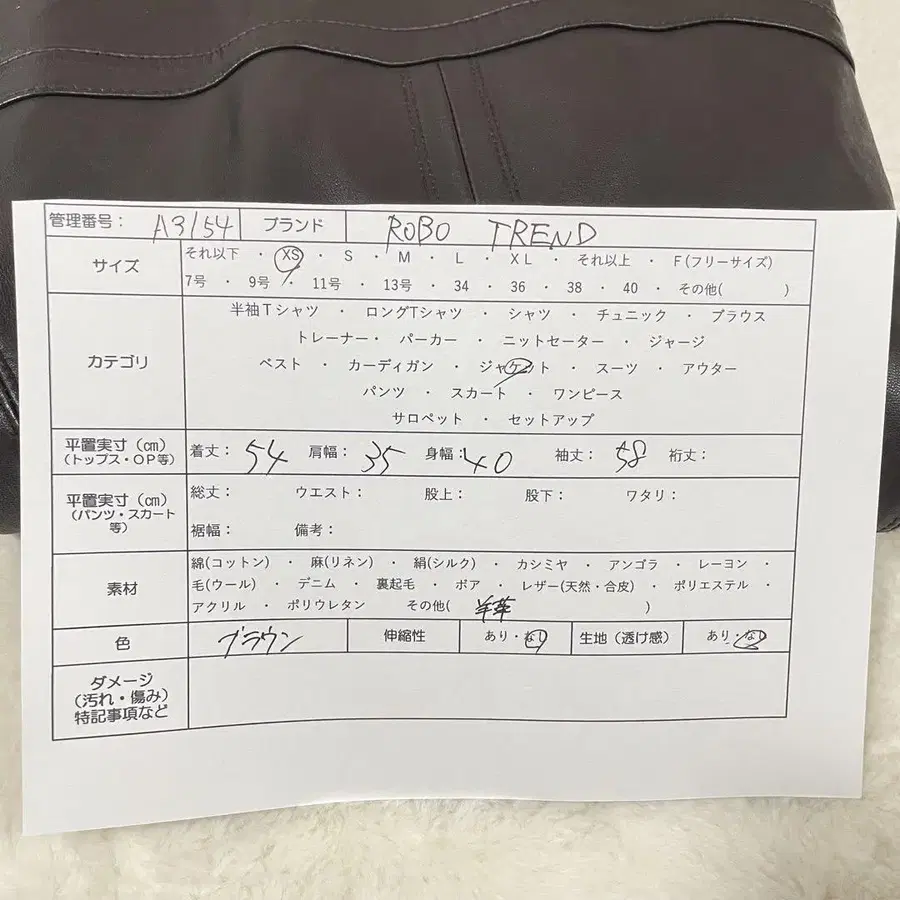 管理番号： A3154 ブランド ROBO TREND
サイズ
それ以下 ・ XS ・ S ・ M ・ L ・ XL ・ それ以上 ・ F(フリーサイズ)
7号 ・ 9号 ・ 11号 ・ 13号 ・ 34 ・ 36 ・ 38 ・ 40 ・ その他( )
カテゴリ
半袖Tシャツ ・ ロングTシャツ ・ シャツ ・ チュニック ・ ブラウス
トレーナー・ パーカー ・ ニットセーター ・ ジャージ
ベスト ・ カーディガン ・ ジャケット ・ スーツ ・ アウター
パンツ ・ スカート ・ ワンピース
サロペット ・ セットアップ
平置実寸（㎝）
（トップス・OP等）
着丈： 54 肩幅： 35 身幅： 40 袖丈： 58 裄丈：
平置実寸（㎝）
（パンツ・スカート
等）
総丈： ウエスト： 股上： 股下： ワタリ：
裾幅： 備考：
素材
綿(コットン) ・ 麻(リネン) ・ 絹(シルク) ・ カシミヤ ・ アンゴラ ・ レーヨン ・
毛(ウール) ・ デニム ・ 裏起毛 ・ ボア ・ レザー(天然・合皮) ・ ポリエステル ・
アクリル ・ ポリウレタン その他( 羊革 )
色 ブラウン 伸縮性 あり・なし 生地（透け感） あり・なし
ダメージ
（汚れ・傷み）
特記事項など